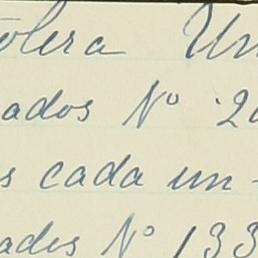 olera Un
ados Nº 2
s cada un-
ades Nº 133